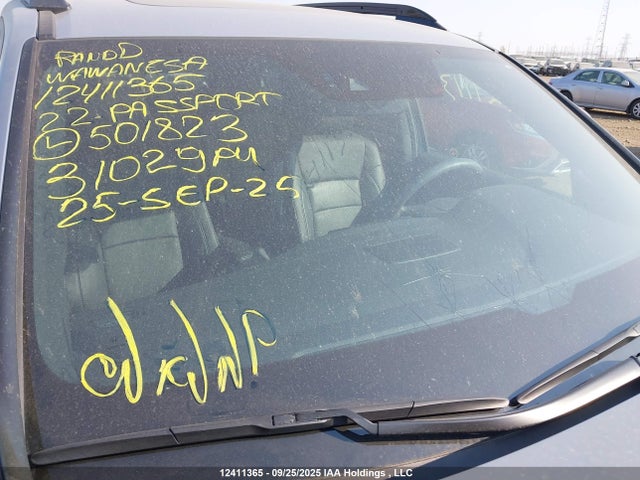 RANDD
WAWANESA
12411365
22-PASSPORT
L 501823
31029PM
25-SEP-25
12411365 - 09/25/2025 IAA Holdings , LLC